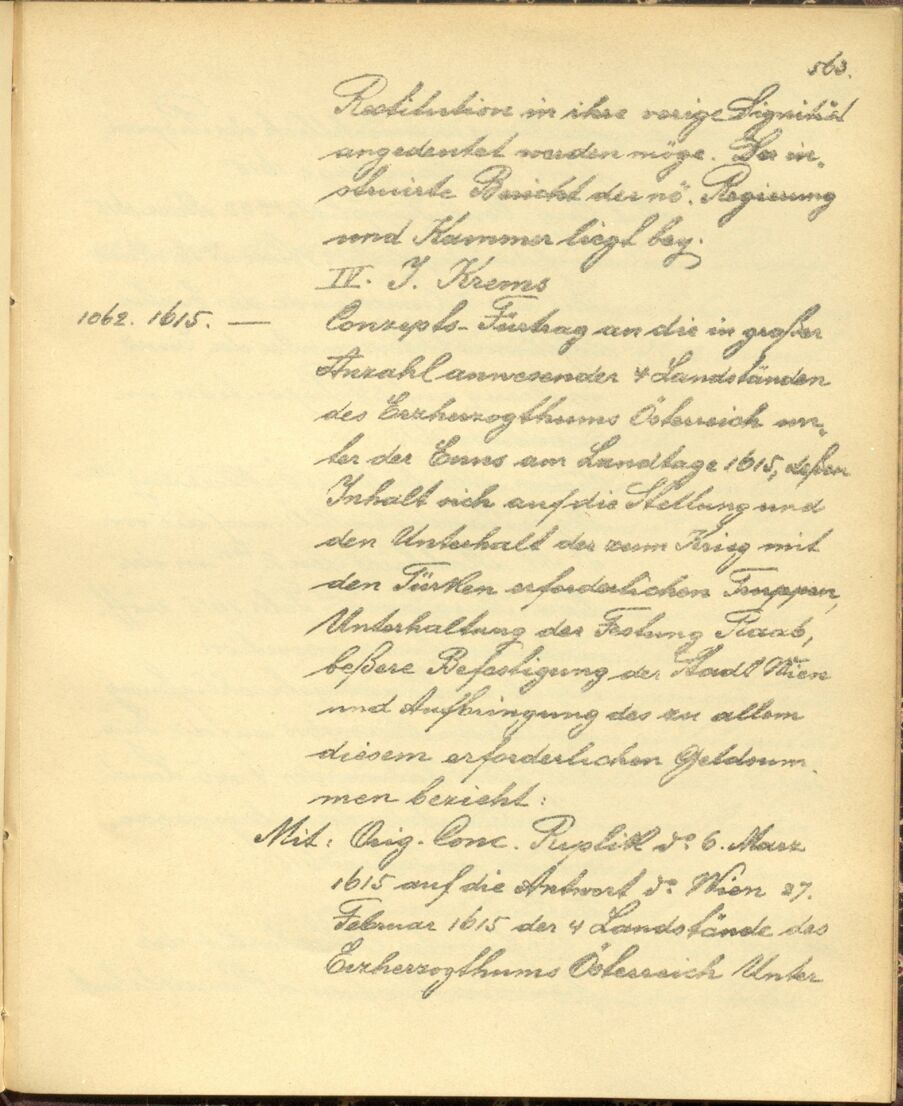 563.
Restitution in ihre vorige Dignität
angedeutet werden möge. Der in-
struirte Bericht der nö. Regierung
und Kammer liegt bey.
IV. J. Krems
1062. 1615. — Conzepts-Fürtrag an die in großer
Anzahl anwesender 4 Landständen
des Erzherzogthums Österreich un-
ter der Enns am Landtage 1615, deßen
Inhalt sich auf die Stellung und
den Unterhalt der zum Krieg mit
den Türken erforderlichen Truppen,
Unterhaltung der Festung Raab,
beßere Befestigung der Stadt Wien
und Aufbringung des zu allem
diesem erforderlichen Geldsum-
men bezieht:
Mit: Orig. Conc. Replik do 6. März
1615 auf die Antwort do Wien 27.
Februar 1615 der 4 Landstände des
Erzherzogthums Österreich Unter